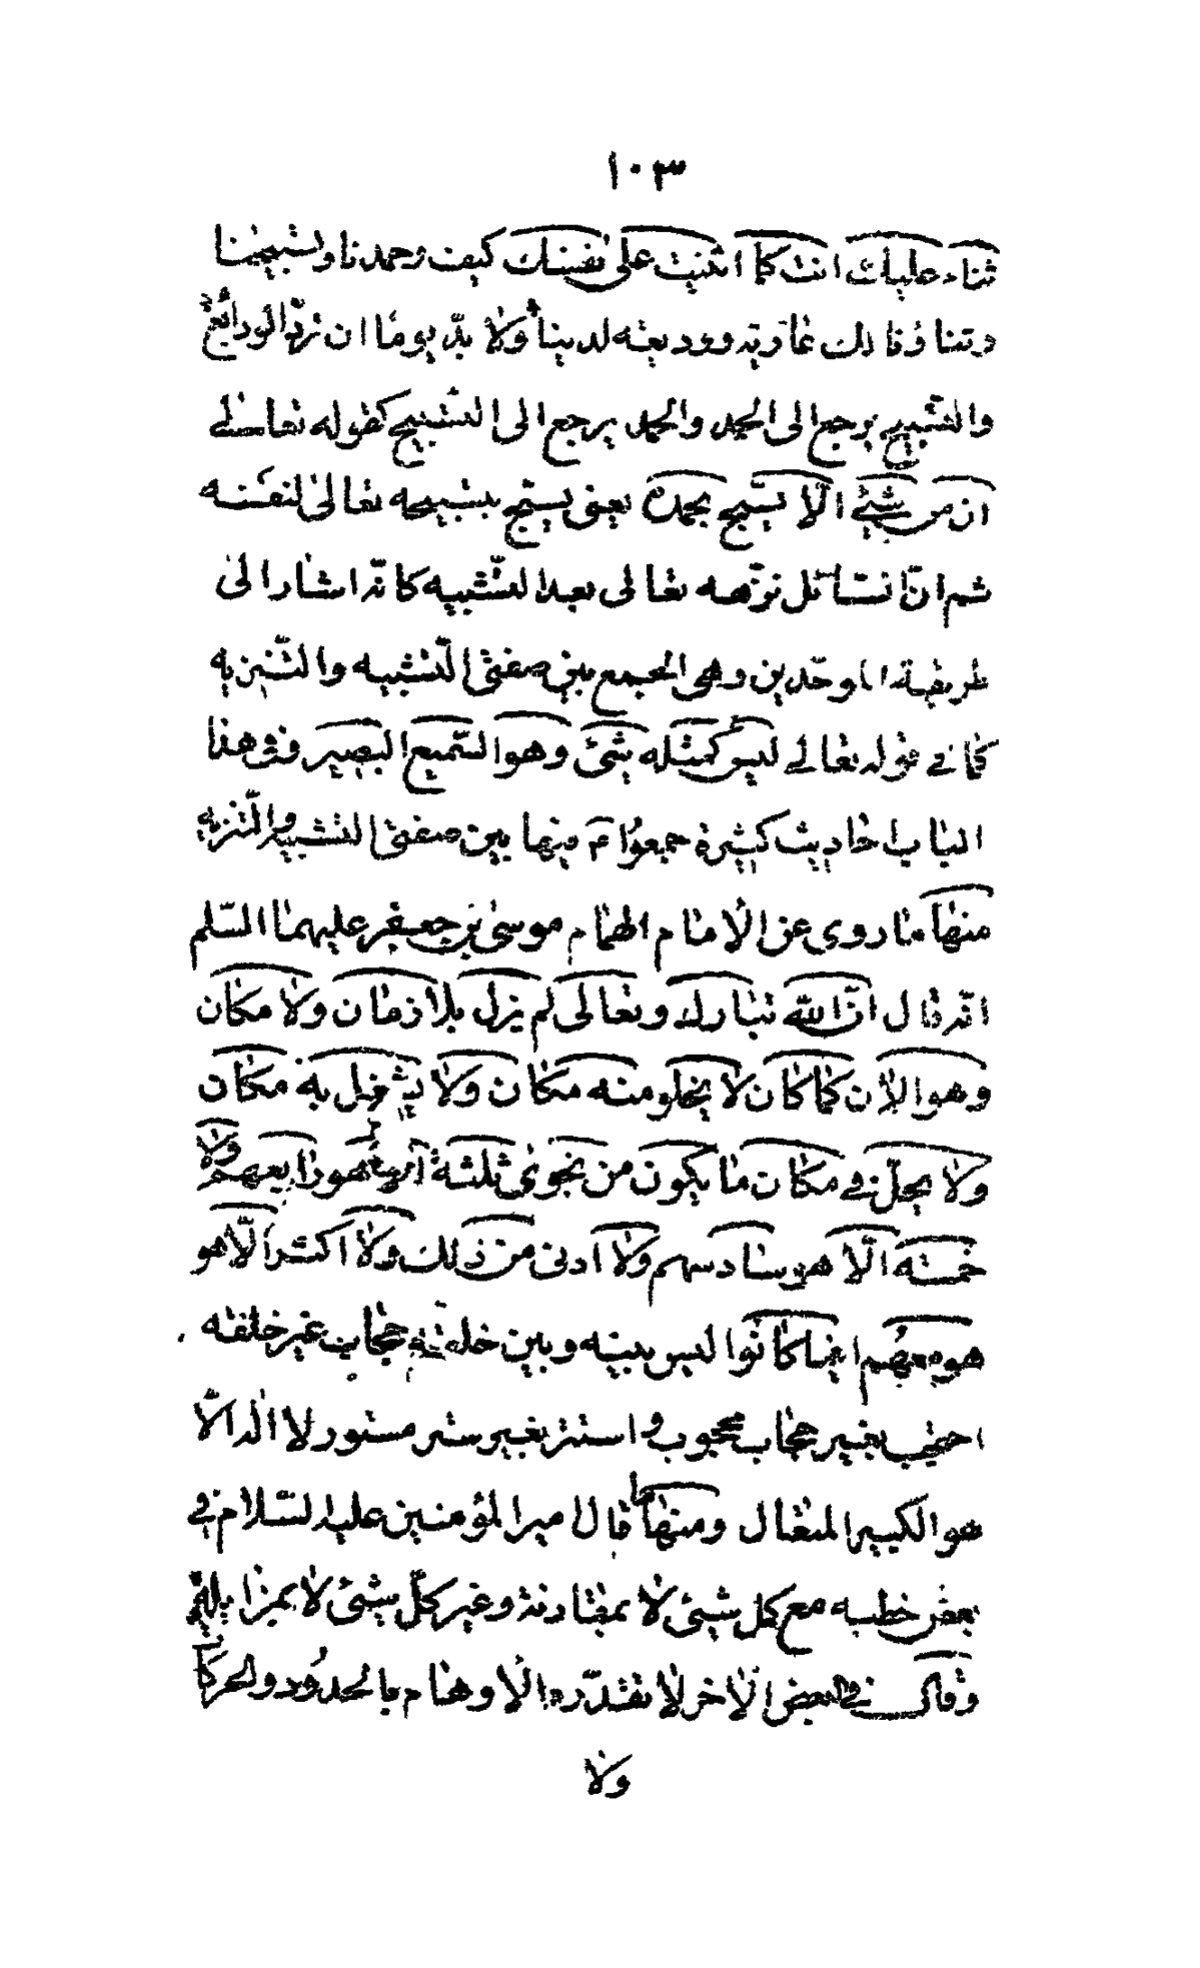 ١٠٣
ثناء عليك انت كما اثنيت على نفسك كيف وحمدنا وتسبيحنا
وثنائنا عارية ووديعة لدينا ولا بدّ يومًا ان تردّ الودائع
والتسبيح يرجع الى الحمد والحمد يرجع الى التسبيح كقوله تعالى
ان من شيئ الّا يسبّح بحمده يعنى يسبّح بتسبيحه تعالى لنفسه
ثم انّ نسائل نزّهه تعالى بعد التّشبيه كانّه اشار الى
طريقة الموحّدين وهى الجمع بين صفتى التّشبيه والتّنزيه
كما في قوله تعالى ليس كمثله شئ وهو السّميع البصير وفى هذا
الباب احاديث كثيرة جمعوا فيها بين صفتى التشبيه والتّنزيه
منها ما روى عن الامام الهمام موسى بن جعفر عليهما السّلم
انّه قال انّ الله تبارك وتعالى لم يزل بلا زمان ولا مكان
وهو الان كما كان لا يخلو منه مكان ولا يشغل به مكان
ولا يحلّ في مكان ما يكون من نجوى ثلثة الّا هو رابعهم ولا
خمسة الّا هو سادسهم ولا ادنى من ذلك ولا اكثر الّا هو
هو معهم اينما كانوا ليس بينه وبين خلقه حجاب غير خلقه
احتجب بغير حجاب محجوب واستتر بغير ستر مستور لا اله الّا
هو الكبير المتعال ومنها ما قال امير المؤمنين عليه السّلام في
بعض خطبه مع كل شيئ لا بمقارنة وغير كلّ شيئ لا بمزايلة
وقال في البعض الآخر لا تقدّره الاوهام بالحدود والحركات
ولا